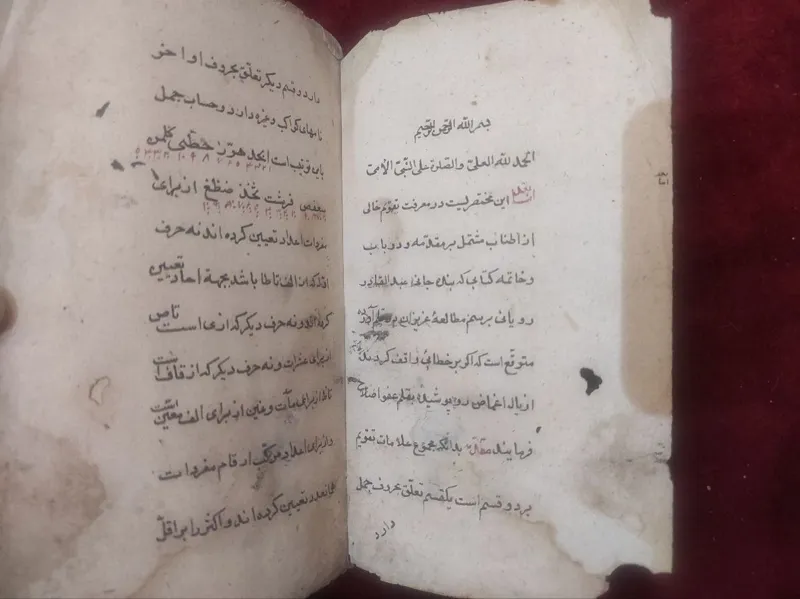 بسم الله الرحمن الرحیم
الحمد لله العلی والصلوة علی النبی الامی
اما بعد این مختصریست در معرفت تقویم خالی
از اطناب مشتمل بر مقدمه و دو باب
و خاتمه کتابی که بنده جانی عبد القادر
رویانی برسم مطالعه عزیزان بر قلم آورد
متوقع است که اگر بر خطائی واقف گردند
از یال اغماض روپوشیده بقلم عفو اصلاح
فرمایند مقدمه بدانکه مجموع علامات تقویم
بر دو قسم است یکقسم تعلق بحروف جمل
دارد
دارد و قسم دیگر تعلق بحروف اواخر
نامهای کواکب و غیره دارد و حساب جمل
باین ترتیب است ابجد هوز حطی کلمن
سعفص قرشت ثخذ ضظغ از برای
مفردات اعداد تعیین کرده اند نه حرف
که از الف تا طا باشد بجهة احاد تعیین
کرده اند و نه حرف دیگر که از ی است تا ص
از برای عشرات و نه حرف دیگر که از قاف است
تا ظ از برای مآت و غین از برای الف معین است
و از برای اعداد مرکب ارقام مفردات
تعیین کرده اند و اکثر را بر اقل